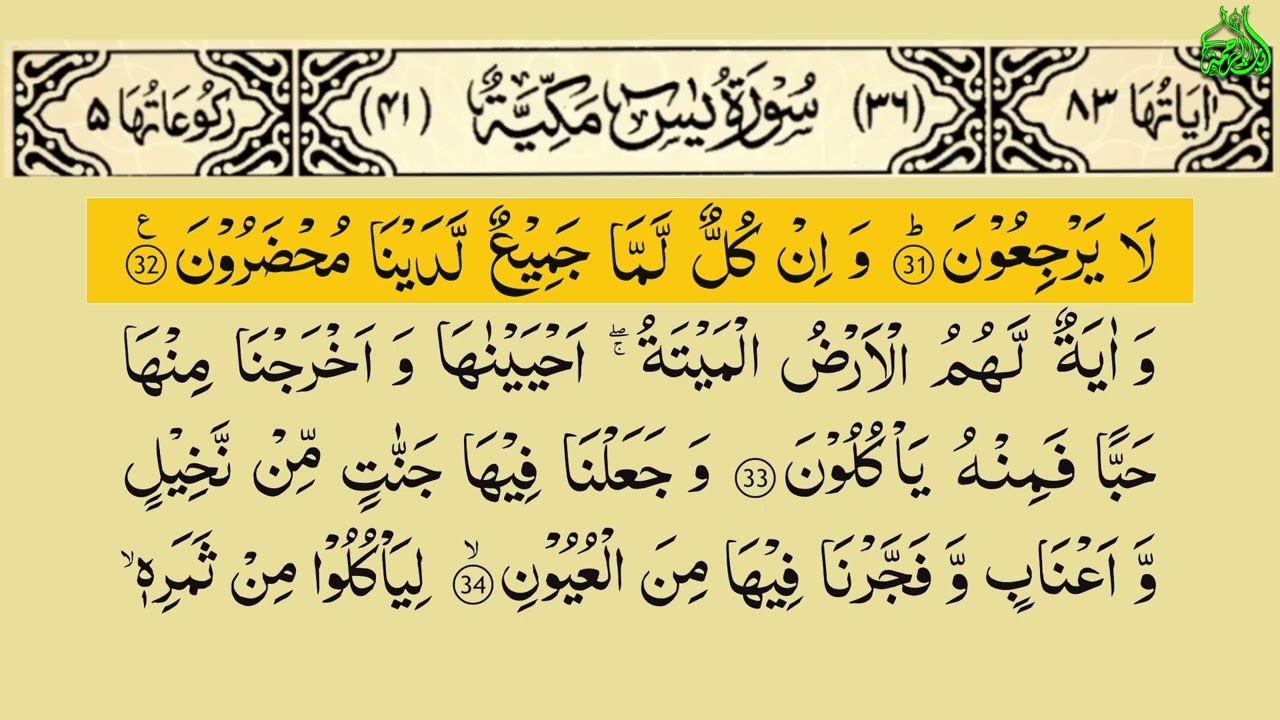 اٰيَاتُهَا ٨٣ (٣٦) سُوْرَةُ يٰسٓ مَكِّيَّةٌ (٤١) رُكُوْعَاتُهَا ۵
لَا يَرْجِعُوْنَ ؕ 31 وَ اِنْ كُلٌّ لَّمَّا جَمِيْعٌ لَّدَيْنَا مُحْضَرُوْنَ ع 32
وَ اٰيَةٌ لَّهُمُ الْاَرْضُ الْمَيْتَةُ ۖۚ اَحْيَيْنٰهَا وَ اَخْرَجْنَا مِنْهَا
حَبًّا فَمِنْهُ يَاْكُلُوْنَ 33 وَ جَعَلْنَا فِيْهَا جَنّٰتٍ مِّنْ نَّخِيْلٍ
وَّ اَعْنَابٍ وَّ فَجَّرْنَا فِيْهَا مِنَ الْعُيُوْنِ ۙ 34 لِيَاْكُلُوْا مِنْ ثَمَرِهٖ ۙ